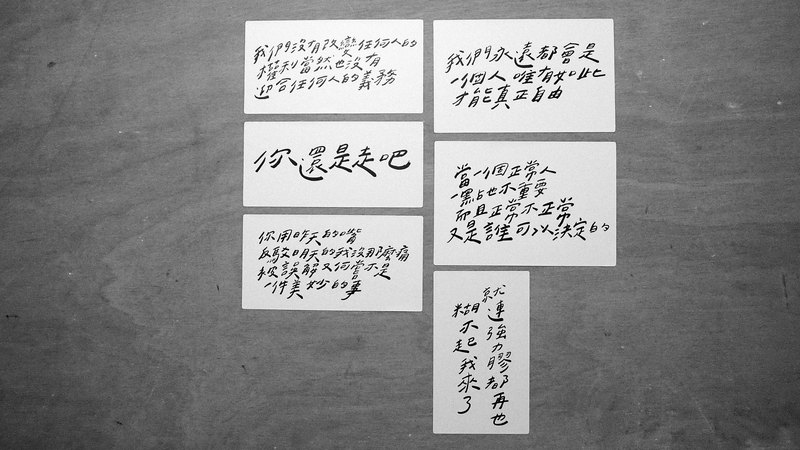 我們沒有改變任何人的
權利當然也沒有
迎合任何人的義務
你還是走吧
你用昨天的嘴
反駁明天的我沒那麼痛
被誤解又何嘗不是
一件美妙的事
我們永遠都會是
一個人 唯有如此
才能真正自由
當一個正常人
一點也不重要
而且正常不正常
又是誰可以決定的
就連強力膠都再也
糊不起我來了